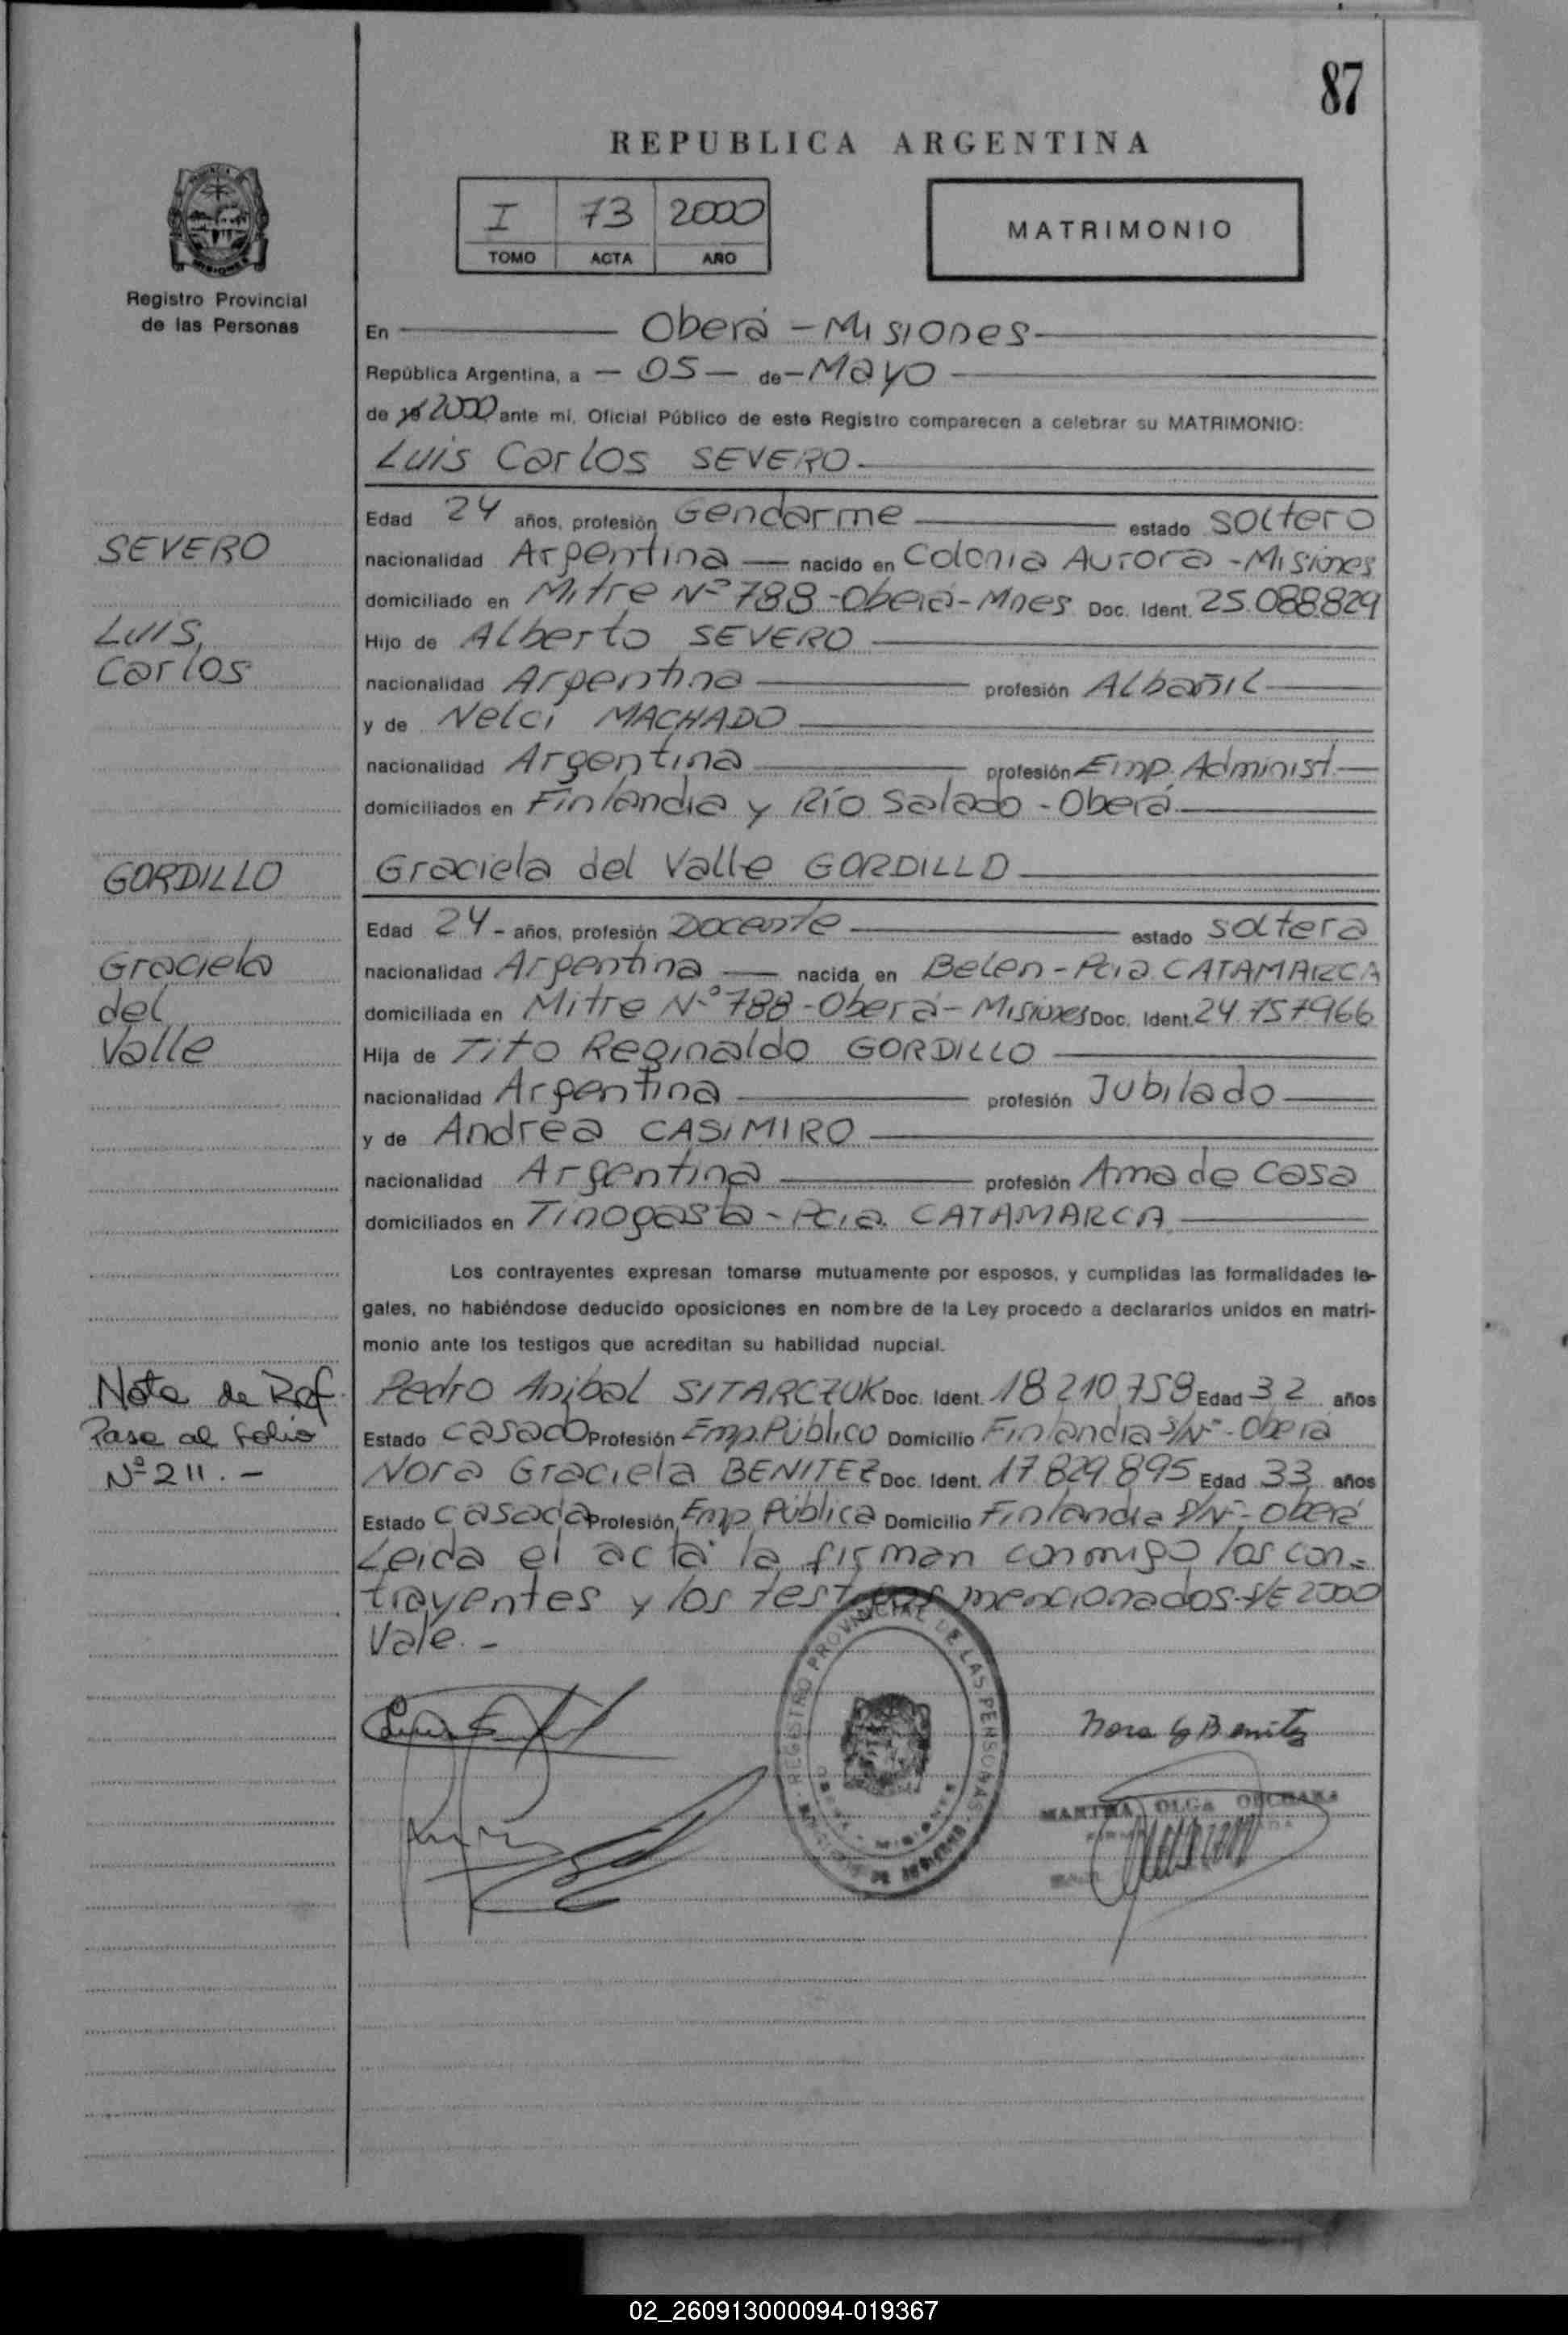 87
REPUBLICA ARGENTINA
I 73 2000
TOMO ACTA AÑO
MATRIMONIO
Registro Provincial
de las Personas
En Oberá - Misiones
República Argentina, a - 05 - de - Mayo
de 19 2000 ante mi, Oficial Público de este Registro comparecen a celebrar su MATRIMONIO:
Luis Carlos SEVERO
Edad 24 años, profesión Gendarme estado soltero
SEVERO
nacionalidad Argentina nacido en Colonia Aurora - Misiones
domiciliado en Mitre Nº 788 - Oberá - Mnes Doc. Ident. 25.088829
Luis,
Hijo de Alberto SEVERO
Carlos
nacionalidad Argentina profesión Albañil
y de Nelci MACHADO
nacionalidad Argentina profesión Emp. Administ.
domiciliados en Finlandia y Río Salado - Oberá
GORDILLO
Graciela del Valle GORDILLO
Edad 24 - años, profesión Docente estado soltera
Graciela
nacionalidad Argentina nacida en Belen - Pcia CATAMARCA
del
domiciliada en Mitre Nº 788 - Oberá - Misiones Doc. Ident. 24.757966
Valle
Hija de Tito Reginaldo GORDILLO
nacionalidad Argentina profesión Jubilado
y de Andrea CASIMIRO
nacionalidad Argentina profesión Ama de Casa
domiciliados en Tinogasta - Pcia. CATAMARCA
Los contrayentes expresan tomarse mutuamente por esposos, y cumplidas las formalidades le-
gales, no habiéndose deducido oposiciones en nombre de la Ley procedo a declararlos unidos en matri-
monio ante los testigos que acreditan su habilidad nupcial.
Nota de Ref.
Pase al folio
Nº 211. -
Pedro Anibal SITARCZUK Doc. Ident. 18.210.758 Edad 32 años
Estado Casado Profesión Emp. Público Domicilio Finlandia S/Nº - Oberá
Nora Graciela BENITEZ Doc. Ident. 17.829.895 Edad 33 años
Estado Casada Profesión Emp. Pública Domicilio Finlandia S/Nº - Oberá
Leida el acta la firman conmigo los con-
trayentes y los testigos mencionados - S/E 2000
Vale. -
REGISTRO PROVINCIAL DE LAS PERSONAS
Nora G Benitez
MARTHA OLGA
02_260913000094-019367